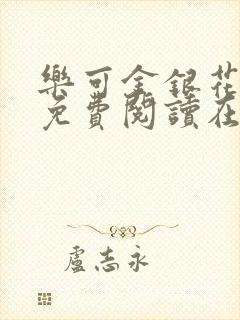 樂可金銀花
免費閱讀在
盧志永